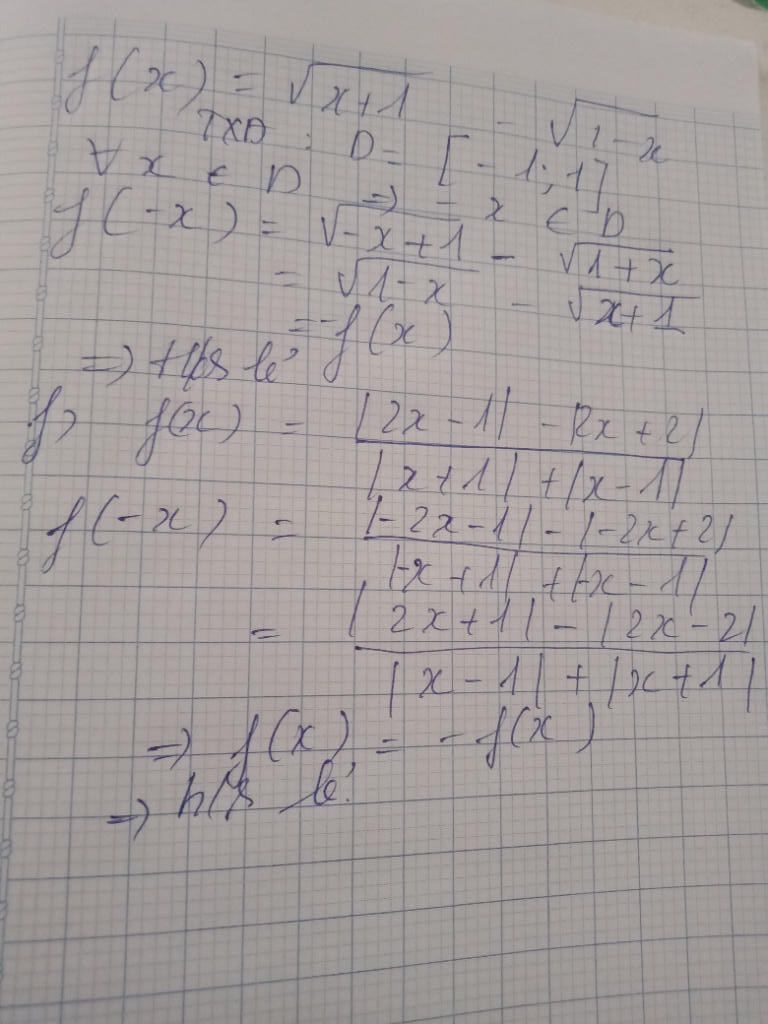 f(x) = √(x+1) - √(1-x)
TXĐ : D = [-1; 1]
∀x ∈ D ⇒ -x ∈ D
f(-x) = √(-x+1) - √(1+x)
= √(1-x) - √(x+1)
= -f(x)
⇒ h/s lẻ
f> f(x) = (|2x-1| - |2x+2|) / (|x+1| + |x-1|)
f(-x) = (|-2x-1| - |-2x+2|) / (|-x+1| + |-x-1|)
= (|2x+1| - |2x-2|) / (|x-1| + |x+1|)
⇒ f(x) = -f(x)
⇒ h/s lẻ.